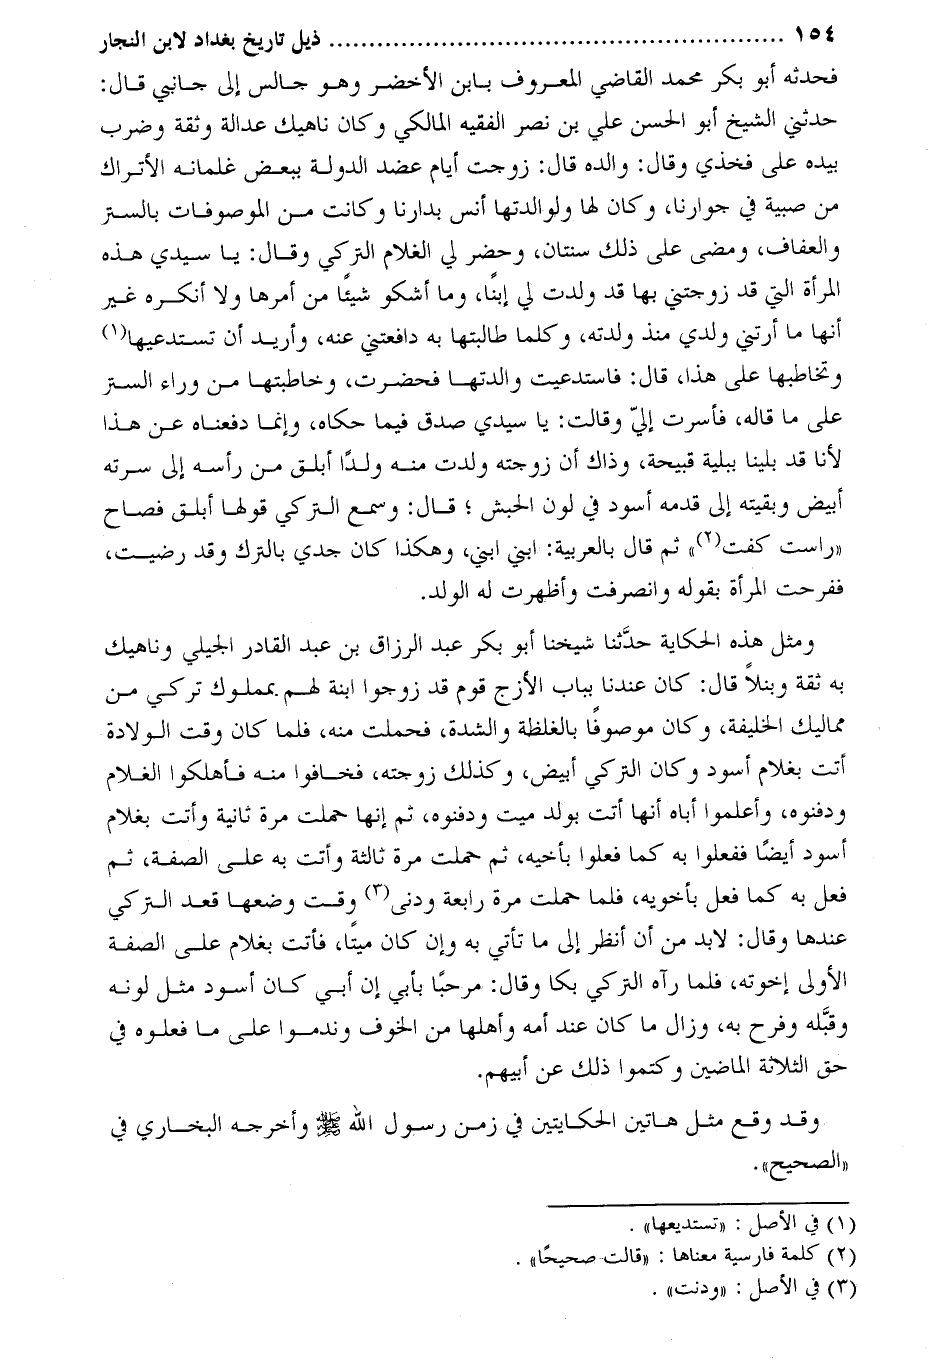 ١٥٤ ........................................................ ذيل تاريخ بغداد لابن النجار
فحدثه أبو بكر محمد القاضي المعروف بابن الأخضر وهو جالس إلى جانبي قال:
حدثني الشيخ أبو الحسن علي بن نصر الفقيه المالكي وكان ناهيك عدالة وثقة وضرب
بيده على فخذي وقال: والده قال: زوجت أيام عضد الدولة ببعض غلمانه الأتراك
من صبية في جوارنا، وكان لها ولوالدتها أنس بدارنا وكانت من الموصوفات بالستر
والعفاف، ومضى على ذلك سنتان، وحضر لي الغلام التركي وقال: يا سيدي هذه
المرأة التي قد زوجتني بها قد ولدت لي إبنًا، وما أشكو شيئًا من أمرها ولا أنكره غير
أنها ما أرتني ولدي منذ ولدته، وكلما طالبتها به دافعتني عنه، وأريد أن تستدعيها(١)
وتخاطبها على هذا، قال: فاستدعيت والدتها فحضرت، وخاطبتها من وراء الستر
على ما قاله، فأسرت إليّ وقالت: يا سيدي صدق فيما حكاه، وإنما دفعناه عن هذا
لأنا قد بلينا ببلية قبيحة، وذاك أن زوجته ولدت منه ولدًا أبلق من رأسه إلى سرته
أبيض وبقيته إلى قدمه أسود في لون الحبش ؛ قال: وسمع التركي قولها أبلق فصاح
«راست كفت(٢)» ثم قال بالعربية: ابني ابني، وهكذا كان جدي بالترك وقد رضيت،
ففرحت المرأة بقوله وانصرفت وأظهرت له الولد.
ومثل هذه الحكاية حدَّثنا شيخنا أبو بكر عبد الرزاق بن عبد القادر الجيلي وناهيك
به ثقة ونبلاً قال: كان عندنا بباب الأزج قوم قد زوجوا ابنة لهم بمملوك تركي من
مماليك الخليفة، وكان موصوفًا بالغلظة والشدة، فحملت منه، فلما كان وقت الولادة
أتت بغلام أسود وكان التركي أبيض، وكذلك زوجته، فخافوا منه فأهلكوا الغلام
ودفنوه، وأعلموا أباه أنها أتت بولد ميت ودفنوه، ثم إنها حملت مرة ثانية وأتت بغلام
أسود أيضًا ففعلوا به كما فعلوا بأخيه، ثم حملت مرة ثالثة وأتت به على الصفة، ثم
فعل به كما فعل بأخويه، فلما حملت مرة رابعة ودنى(٣) وقت وضعها قعد التركي
عندها وقال: لابد من أن أنظر إلى ما تأتي به وإن كان ميتًا، فأتت بغلام على الصفة
الأولى إخوته، فلما رآه التركي بكا وقال: مرحبًا بأبي إن أبي كان أسود مثل لونه
وقبَّله وفرح به، وزال ما كان عند أمه وأهلها من الخوف وندموا على ما فعلوه في
حق الثلاثة الماضين وكتموا ذلك عن أبيهم.
وقد وقع مثل هاتين الحكايتين في زمن رسول الله ﷺ وأخرجه البخاري في
«الصحيح».
(١) في الأصل : «تستديعها» .
(٢) كلمة فارسية معناها : «قالت صحيحًا» .
(٣) في الأصل : «ودنت» .